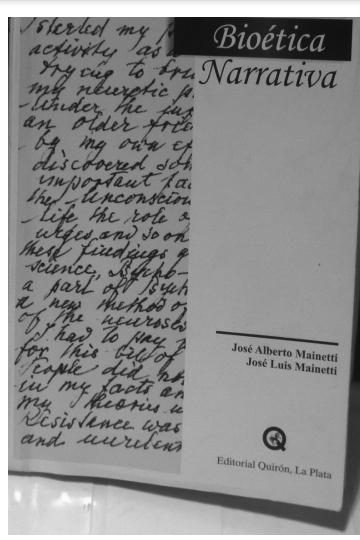 Bioética
Narrativa
I started my
activity as a
trying to
my neurotic p
Under the
an older frie
by my own ef
discovered som
important fac
the Unconsciou
life the role o
urges, and so on
these findings g
science, Psycho-
a part of Psych
a new method o
of the neuroses
I had to pay
for this bit of
People did no
in my facts an
my theories u
Resistance was
and unrelen
José Alberto Mainetti
José Luis Mainetti
Editorial Quirón, La Plata